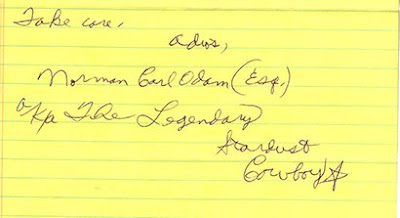 Take care,
adios,
Norman Carl Odam (Esq.)
a/k/a The Legendary
Stardust
Cowboy